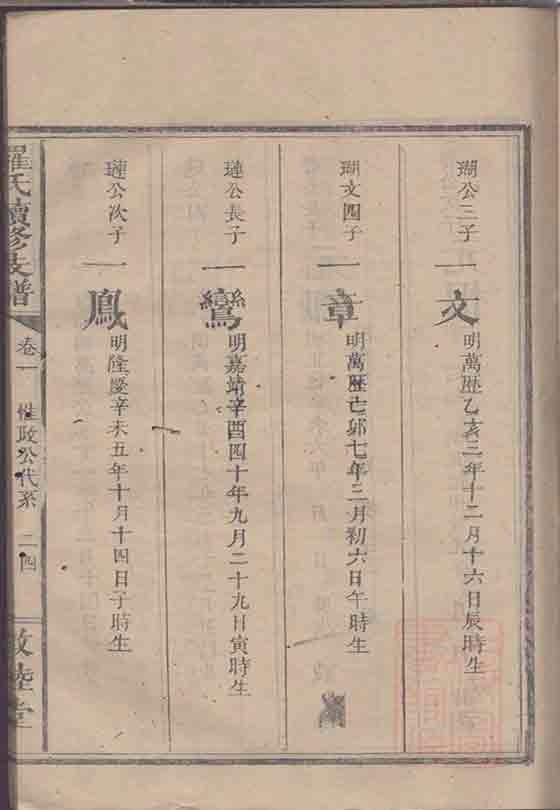 瑚公三子 一文 明萬歷乙亥三年十二月十六日辰時生
瑚文四子 一章 明萬歷亡卯七年三月初六日午時生
璉公長子 一鸞 明嘉靖辛酉四十年九月二十九日寅時生
璉公次子 一鳳 明隆慶辛未五年十月十四日子時生
羅氏續修支譜 卷一 惟政公代系 二四 敦睦堂